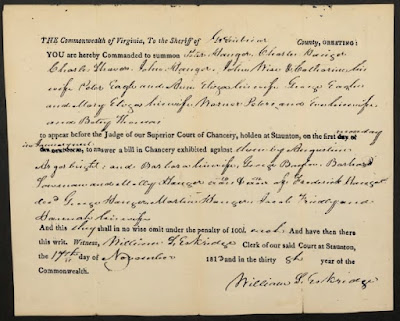 THE Commonwealth of Virginia, To the Sheriff of Greenbrier County, GREETING:
YOU are hereby Commanded to summon Peter Hanger, Charles Hanger
Charles Thomas, John Hanger, John Wise & Catharine his
wife Peter Eagle and Ann Eliza his wife George Eagle
and Mary Eliza his wife Warner Peters and his wife
and Betsy Thomas
to appear before the Judge of our Superior Court of Chancery, holden at Staunton, on the first day monday
in to answer a bill in Chancery exhibited against them by Augustine
Argabright; and Barbara his wife, George Barnhard
and Molly Hanger of Frederick Hanger
decd George Hanger, Martin Hanger, Jacob and
Hannah his wife
And this they shall in no wise omit under the penalty of 100l. each. And have then there
this writ. Witness, William S. Eskridge Clerk of our said Court at Staunton,
the 17th day of November 1813 and in the thirty 8th year of the
Commonwealth.
William S. Eskridge